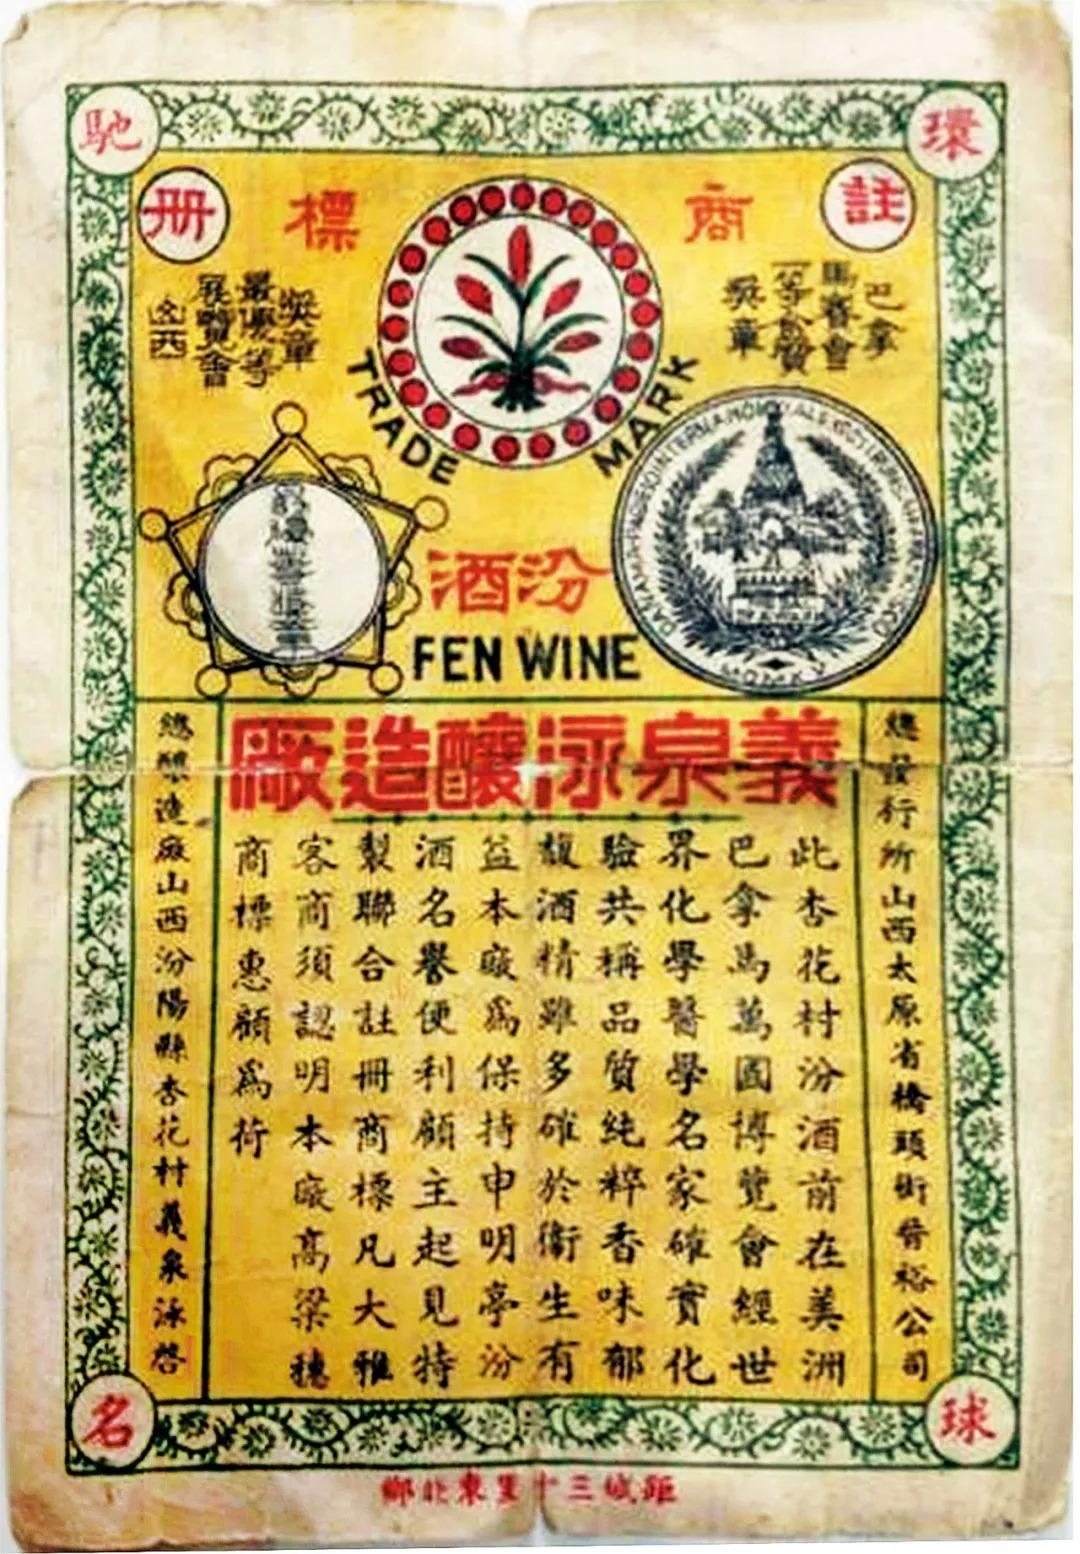 環球馳名
註冊
商標
巴拿
馬賽會
一等金質
獎章
山西
展覽會
最優等
獎章
TRADE MARK
最優等獎章
汾酒
FEN WINE
義泉泳釀造廠
總發行所山西太原省橋頭街晉裕公司
此杏花村汾酒前在美洲
巴拿馬萬國博覽會經世
界化學醫學名家確實化
驗共稱品質純粹香味郁
馥酒精雖多確於衛生有
益本廠爲保持申明亭汾
酒名譽便利顧主起見特
製聯合註冊商標凡大雅
客商須認明本廠高粱穗
商標惠顧爲荷
總釀造廠山西汾陽縣杏花村義泉泳啓
距城三十里東北鄉